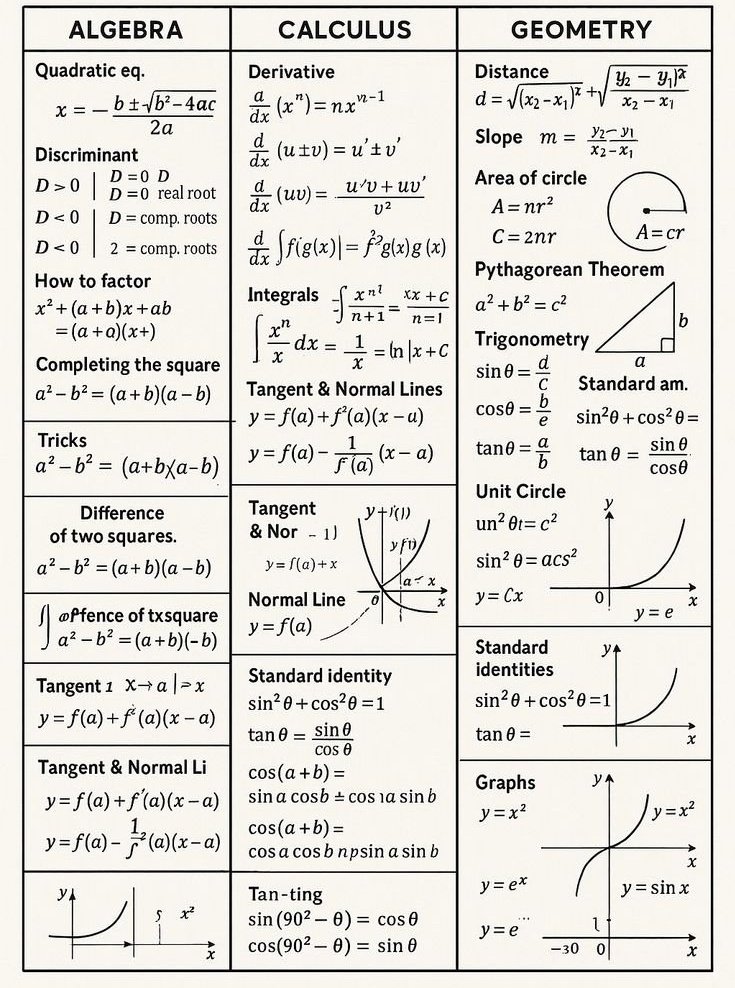 ALGEBRA
Quadratic eq.
x = − b ± √b² − 4ac / 2a
Discriminant
D > 0 | D = 0 D
D = 0 real root
D < 0 | D = comp. roots
D < 0 | 2 = comp. roots
How to factor
x² + (a + b)x + ab
= (a + a)(x+)
Completing the square
a² − b² = (a + b)(a − b)
Tricks
a² − b² = (a+b)(a−b)
Difference
of two squares.
a² − b² = (a + b)(a − b)
a² − b² = (a + b)(−b)
Tangent 1 x → a | > x
y = f(a) + f (a)(x − a)
Tangent & Normal Li
y = f(a) + f′(a)(x − a)
y = f(a) − 1/f ² (a)(x − a)
y
x²
x
CALCULUS
Derivative
a/dx (xⁿ) = nxⁿ⁻¹
d/dx (u ± v) = u′ ± v′
d/dx (uv) = u′v + uv′ / v²
d/dx ∫ f(g(x)| = f²g(x)g (x)
Integrals
n+1
xx + C / n=1
∫ xⁿ/x dx = 1/x = (n |x + C
Tangent & Normal Lines
y = f(a) + f²(a)(x − a)
y = f(a) − 1/f (a) (x − a)
Tangent
& Nor − 1)
y = f(a) + x
Normal Line
y = f(a)
θ
x
Standard identity
sin²θ + cos²θ = 1
tan θ = sin θ / cos θ
cos(a + b) =
sin a cosb ± cos ıa sin b
cos(a + b) =
cos a cos b npsin a sin b
Tan-ting
sin (90² − θ) = cos θ
cos(90² − θ) = sin θ
GEOMETRY
Distance
d = √(x₂ − x₁)² + √(y₂ − y₁)² / x₂ − x₁
Slope m = y₂ − y₁ / x₂ − x₁
Area of circle
A = nr²
C = 2nr
A = cr
Pythagorean Theorem
a² + b² = c²
b
a
Trigonometry
sin θ = d/c
cosθ = b/e
tanθ = a/b
Standard am.
sin²θ + cos²θ =
tan θ = sin θ / cosθ
Unit Circle
un² θt = c²
sin² θ = acs²
y = Cx
y
0
x
y = e
Standard
identities
sin²θ + cos²θ = 1
tan θ =
y
x
Graphs
y = x²
y
y = x²
x
y = eˣ
y = sin x
y = e
−30
0
x